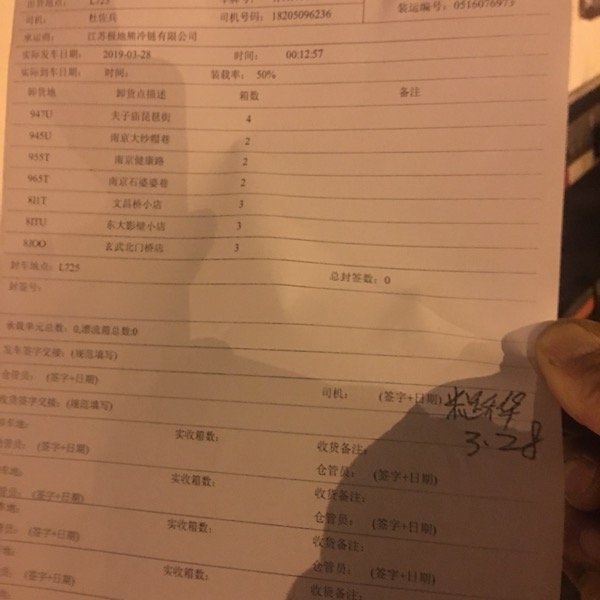 出货地点: L725
装运编号: 0516076973
司机: 杜佐兵 司机号码: 18205096236
承运商: 江苏极地熊冷链有限公司
实际发车日期: 2019-03-28 时间: 00:12:57
实际到车日期: 时间: 装载率: 50%
卸货地 卸货点描述 箱数 备注
947U 夫子庙琵琶街 4
945U 南京大纱帽巷 2
955T 南京健康路 2
965T 南京石婆婆巷 2
8I1T 文昌桥小店 3
8ITU 东大影壁小店 3
8JOO 玄武北门桥店 3
封车地点: L725 总封签数: 0
封签号:
承载单元总数: 0,漂流箱总数:0
发车签字交接: (规范填写)
仓管员: (签字+日期) 司机: (签字+日期)
3.28
收货签字交接: (规范填写)
卸车地: 实收箱数: 收货备注:
仓管员: (签字+日期) 仓管员: (签字+日期)
卸车地: 实收箱数: 收货备注:
仓管员: (签字+日期) 仓管员: (签字+日期)
车地: 实收箱数: 收货备注:
管员: (签字+日期) 仓管员: (签字+日期)
地: 实收箱数: 收货备注:
员: (签字+日期)